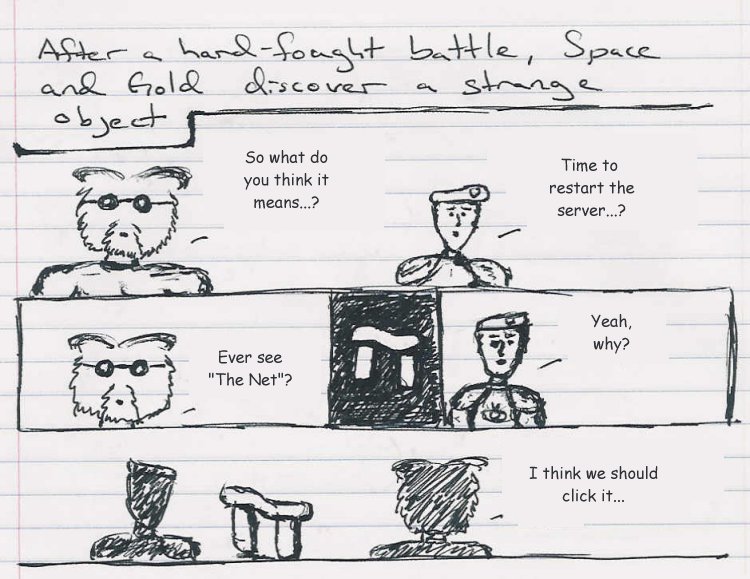 After a hard-fought battle, Space
and Gold discover a strange
object
So what do
you think it
means...?
Time to
restart the
server...?
Ever see
"The Net"?
Yeah,
why?
I think we should
click it...